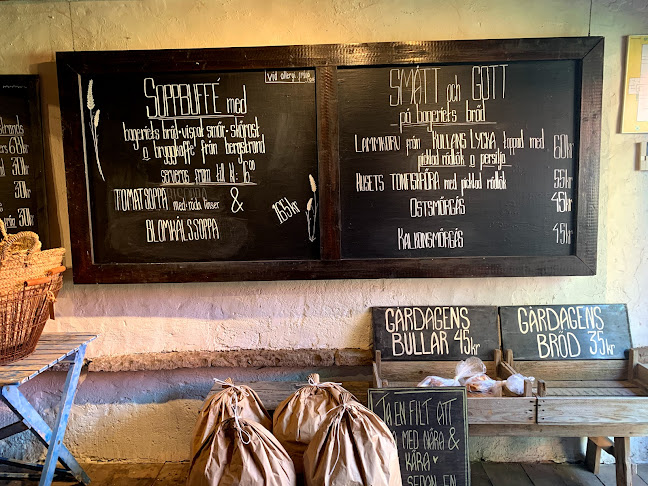 SOPPBUFFÉ med
bageriets bröd, vispat smör, skönost,
o bryggkaffe från bergstrand
serveras fram till kl: 16⁰⁰
TOMATSOPPA med röda linser &
BLOMKÅLSSOPPA
165kr
SMÅTT och GOTT
på bageriets bröd
LAMMKORV från KULLANS LYCKA, toppad med
picklad rödlök o persilja
60kr
HUSETS TONFISKRÖRA med picklad rödlök 55kr
OSTSMÖRGÅS 45kr
KALKONSMÖRGÅS 45kr
65kr
30kr
30kr
30kr
GÅRDAGENS
BULLAR 45kr
GÅRDAGENS
BRÖD 35kr
TA EN FILT ATT
MED NÄRA &
KÄRA ♥
SEDAN EN